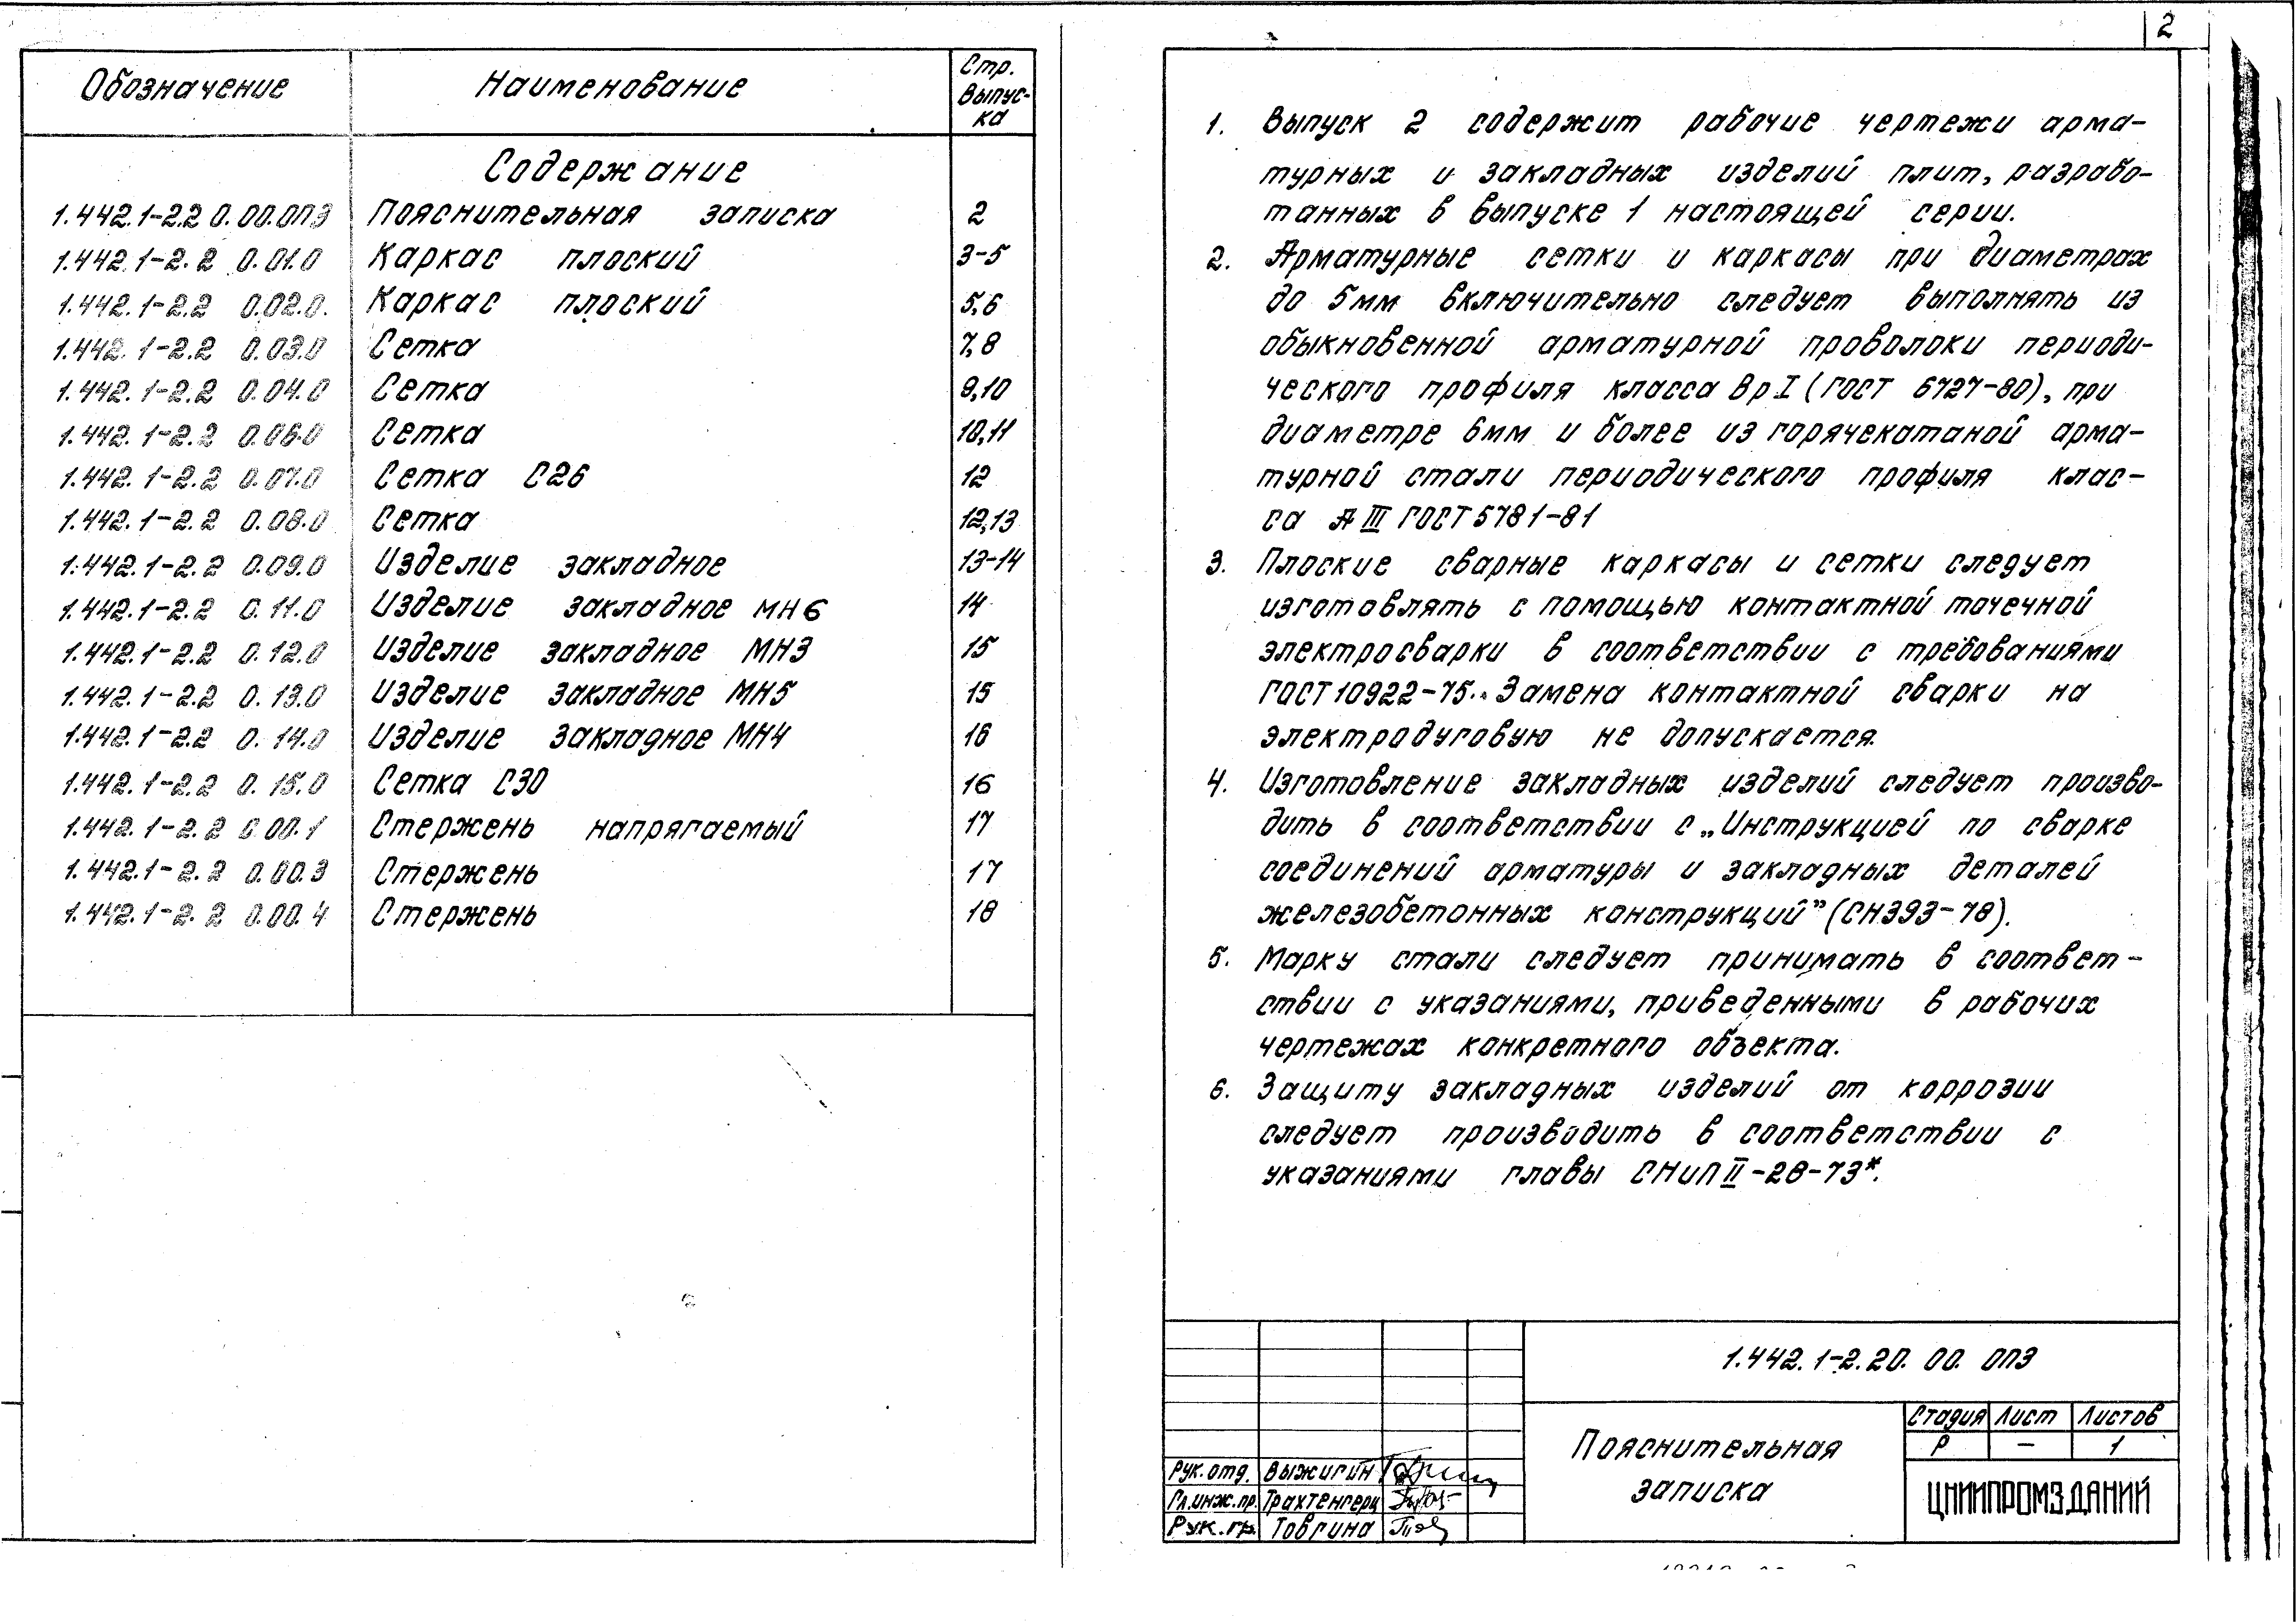 Обозначение Наименование Стр. Выпус-ка
Содержание
1.442.1-2.2 0.00.0ПЗ Пояснительная записка 2
1.442.1-2.2 0.01.0 Каркас плоский 3-5
1.442.1-2.2 0.02.0. Каркас плоский 5,6
1.442.1-2.2 0.03.0 Сетка 7,8
1.442.1-2.2 0.04.0 Сетка 9,10
1.442.1-2.2 0.06.0 Сетка 10,11
1.442.1-2.2 0.07.0 Сетка С26 12
1.442.1-2.2 0.08.0 Сетка 12,13
1.442.1-2.2 0.09.0 Изделие закладное 13-14
1.442.1-2.2 0.11.0 Изделие закладное МН6 14
1.442.1-2.2 0.12.0 Изделие закладное МН3 15
1.442.1-2.2 0.13.0 Изделие закладное МН5 15
1.442.1-2.2 0.14.0 Изделие закладное МН4 16
1.442.1-2.2 0.15.0 Сетка С30 16
1.442.1-2.2 0.00.1 Стержень напрягаемый 17
1.442.1-2.2 0.00.3 Стержень 17
1.442.1-2.2 0.00.4 Стержень 18
2
1. Выпуск 2 содержит рабочие чертежи арма-
турных и закладных изделий плит, разрабо-
танных в выпуске 1 настоящей серии.
2. Арматурные сетки и каркасы при диаметрах
до 5мм включительно следует выполнять из
обыкновенной арматурной проволоки периоди-
ческого профиля класса Вр I (ГОСТ 6727-80), при
диаметре 6мм и более из горячекатаной арма-
турной стали периодического профиля клас-
са А III ГОСТ 5781-81
3. Плоские сварные каркасы и сетки следует
изготовлять с помощью контактной точечной
электросварки в соответствии с требованиями
ГОСТ 10922-75. Замена контактной сварки на
электродуговую не допускается.
4. Изготовление закладных изделий следует произво-
дить в соответствии с „Инструкцией по сварке
соединений арматуры и закладных деталей
железобетонных конструкций” (СН393-78).
5. Марку стали следует принимать в соответ-
ствии с указаниями, приведенными в рабочих
чертежах конкретного объекта.
6. Защиту закладных изделий от коррозии
следует производить в соответствии с
указаниями главы СНиП II-28-73*.
1.442.1-2.20.00.0ПЗ
Пояснительная
записка
Стадия Лист Листов
Р — 1
ЦНИИПРОМЗДАНИЙ
Рук.отд. Выжигин
Гл.инж.пр. Трахтенгерц
Рук.гр. Товгина